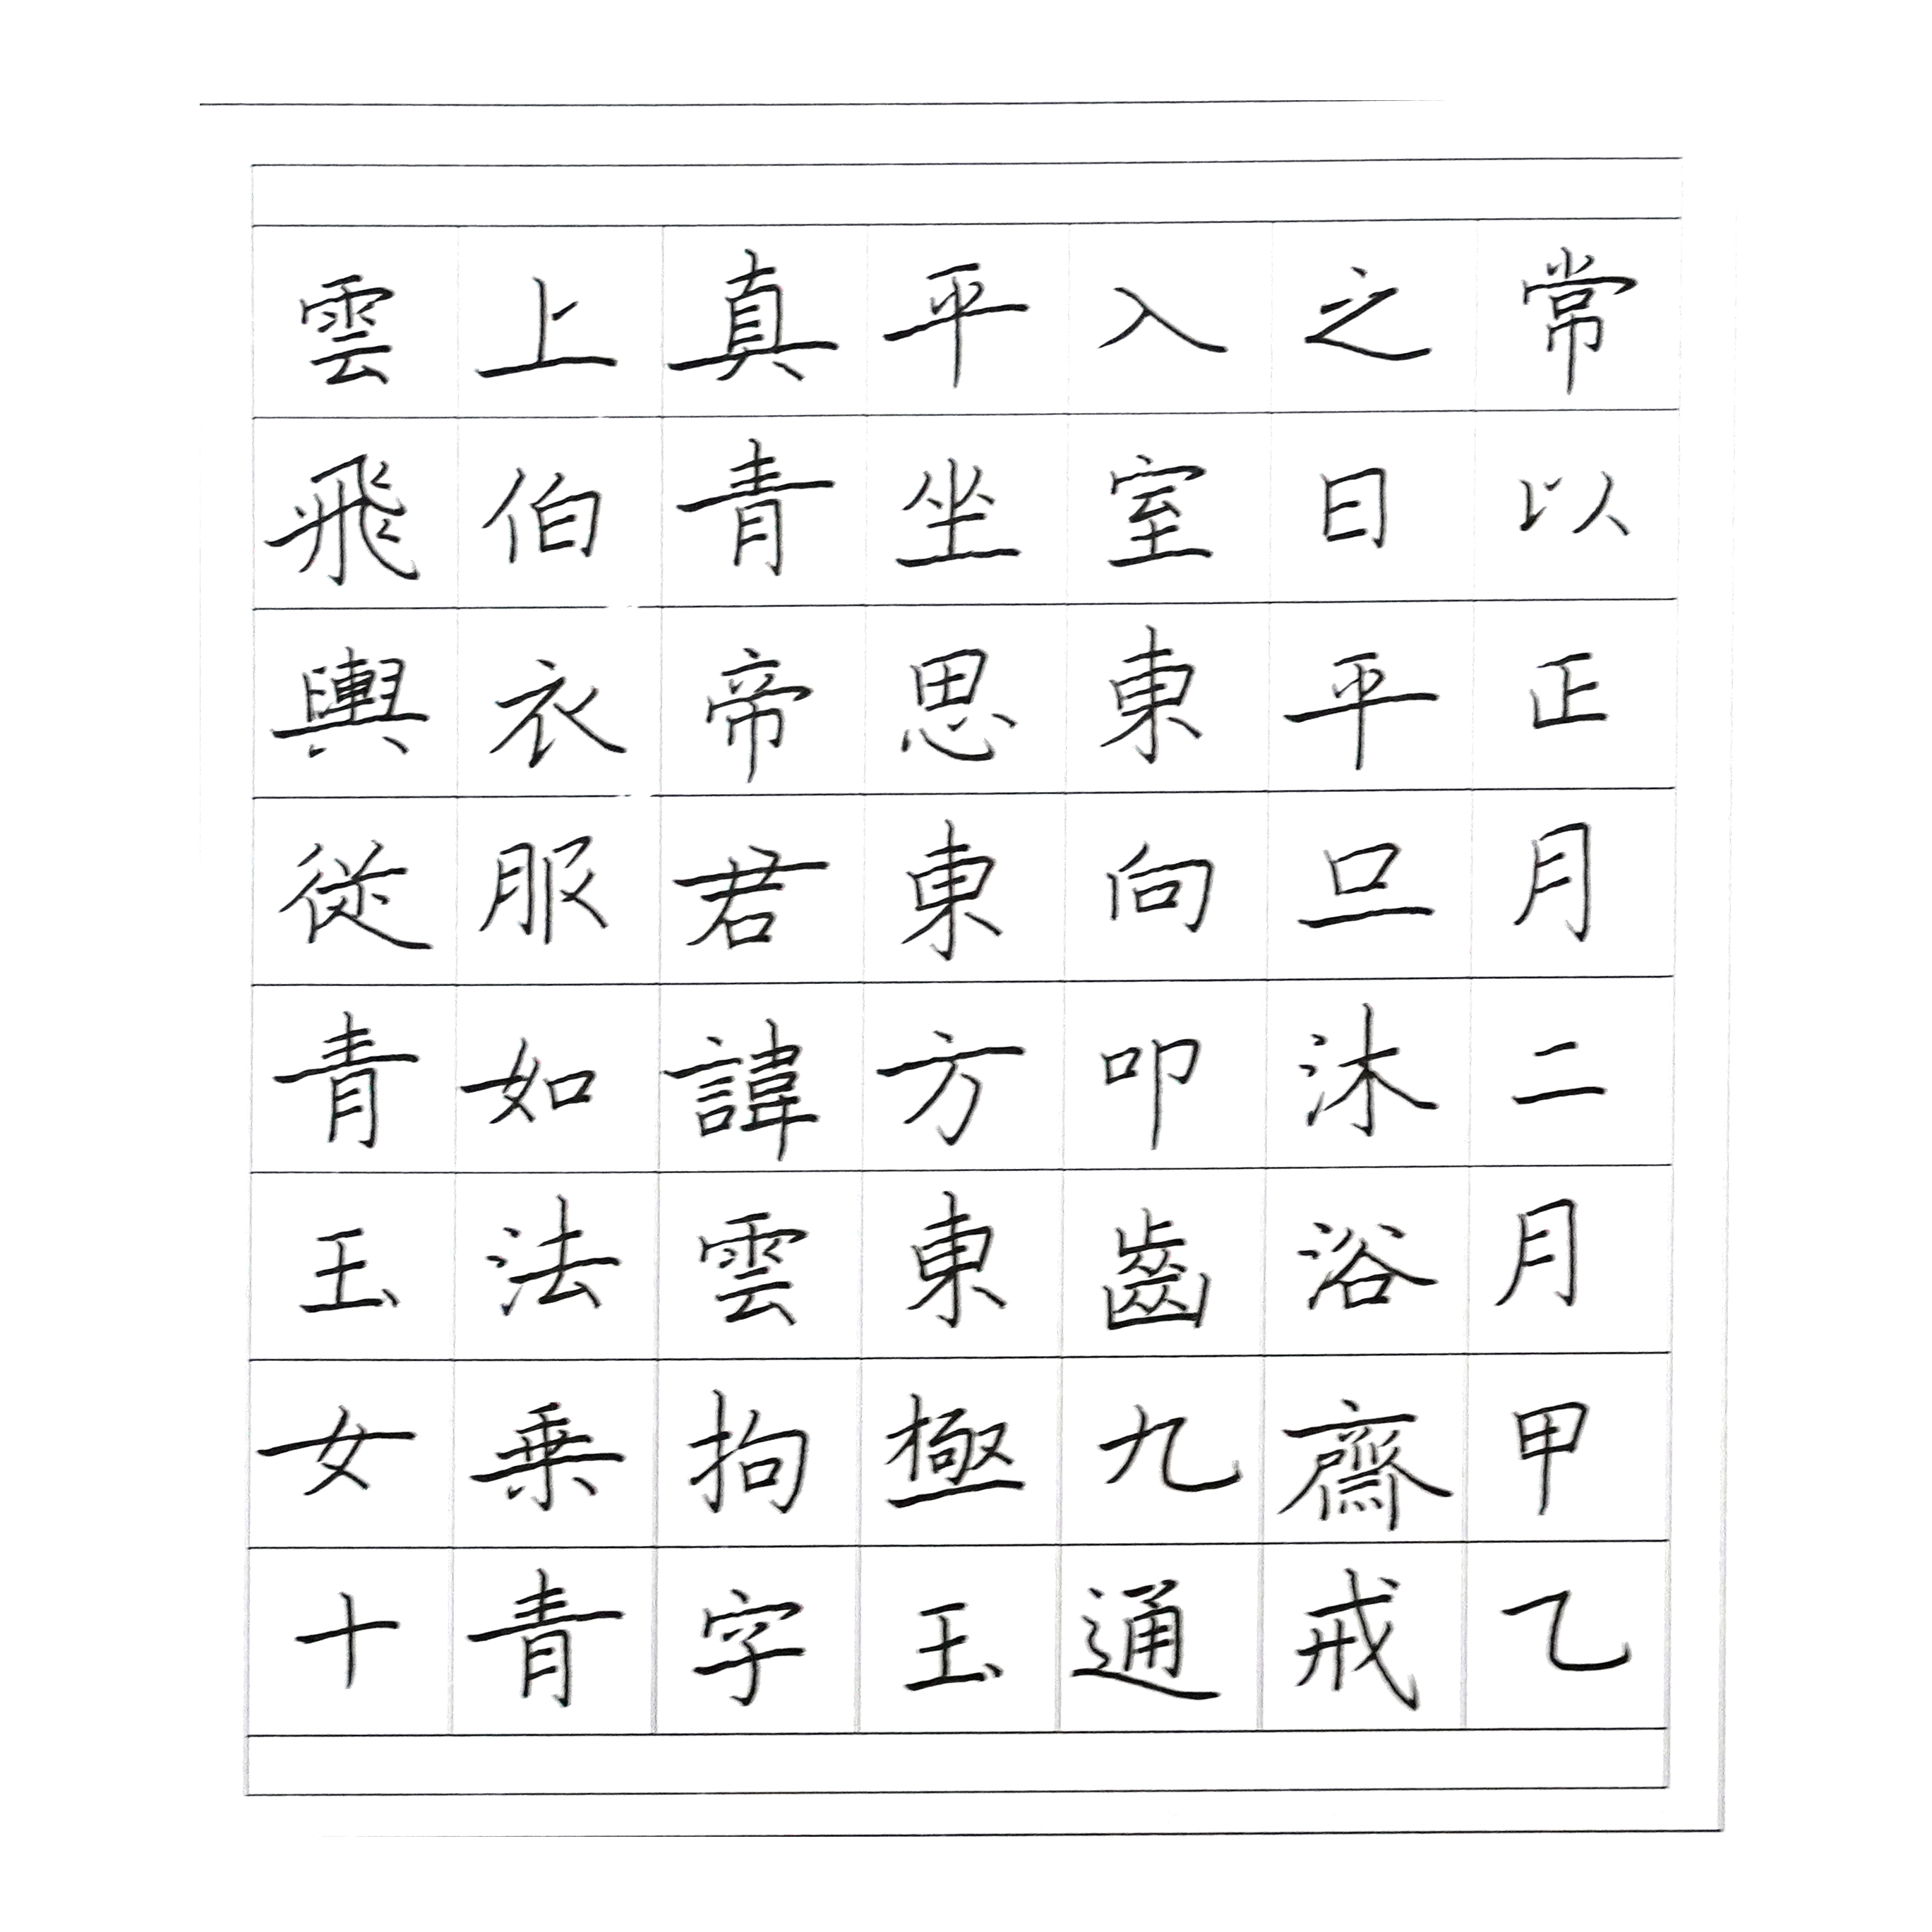 常以正月二月甲乙
之日平旦沐浴齋戒
入室東向叩齒九通
平坐思東方東極玉
真青帝君諱雲拘字
上伯衣服如法乗青
雲飛輿從青玉女十